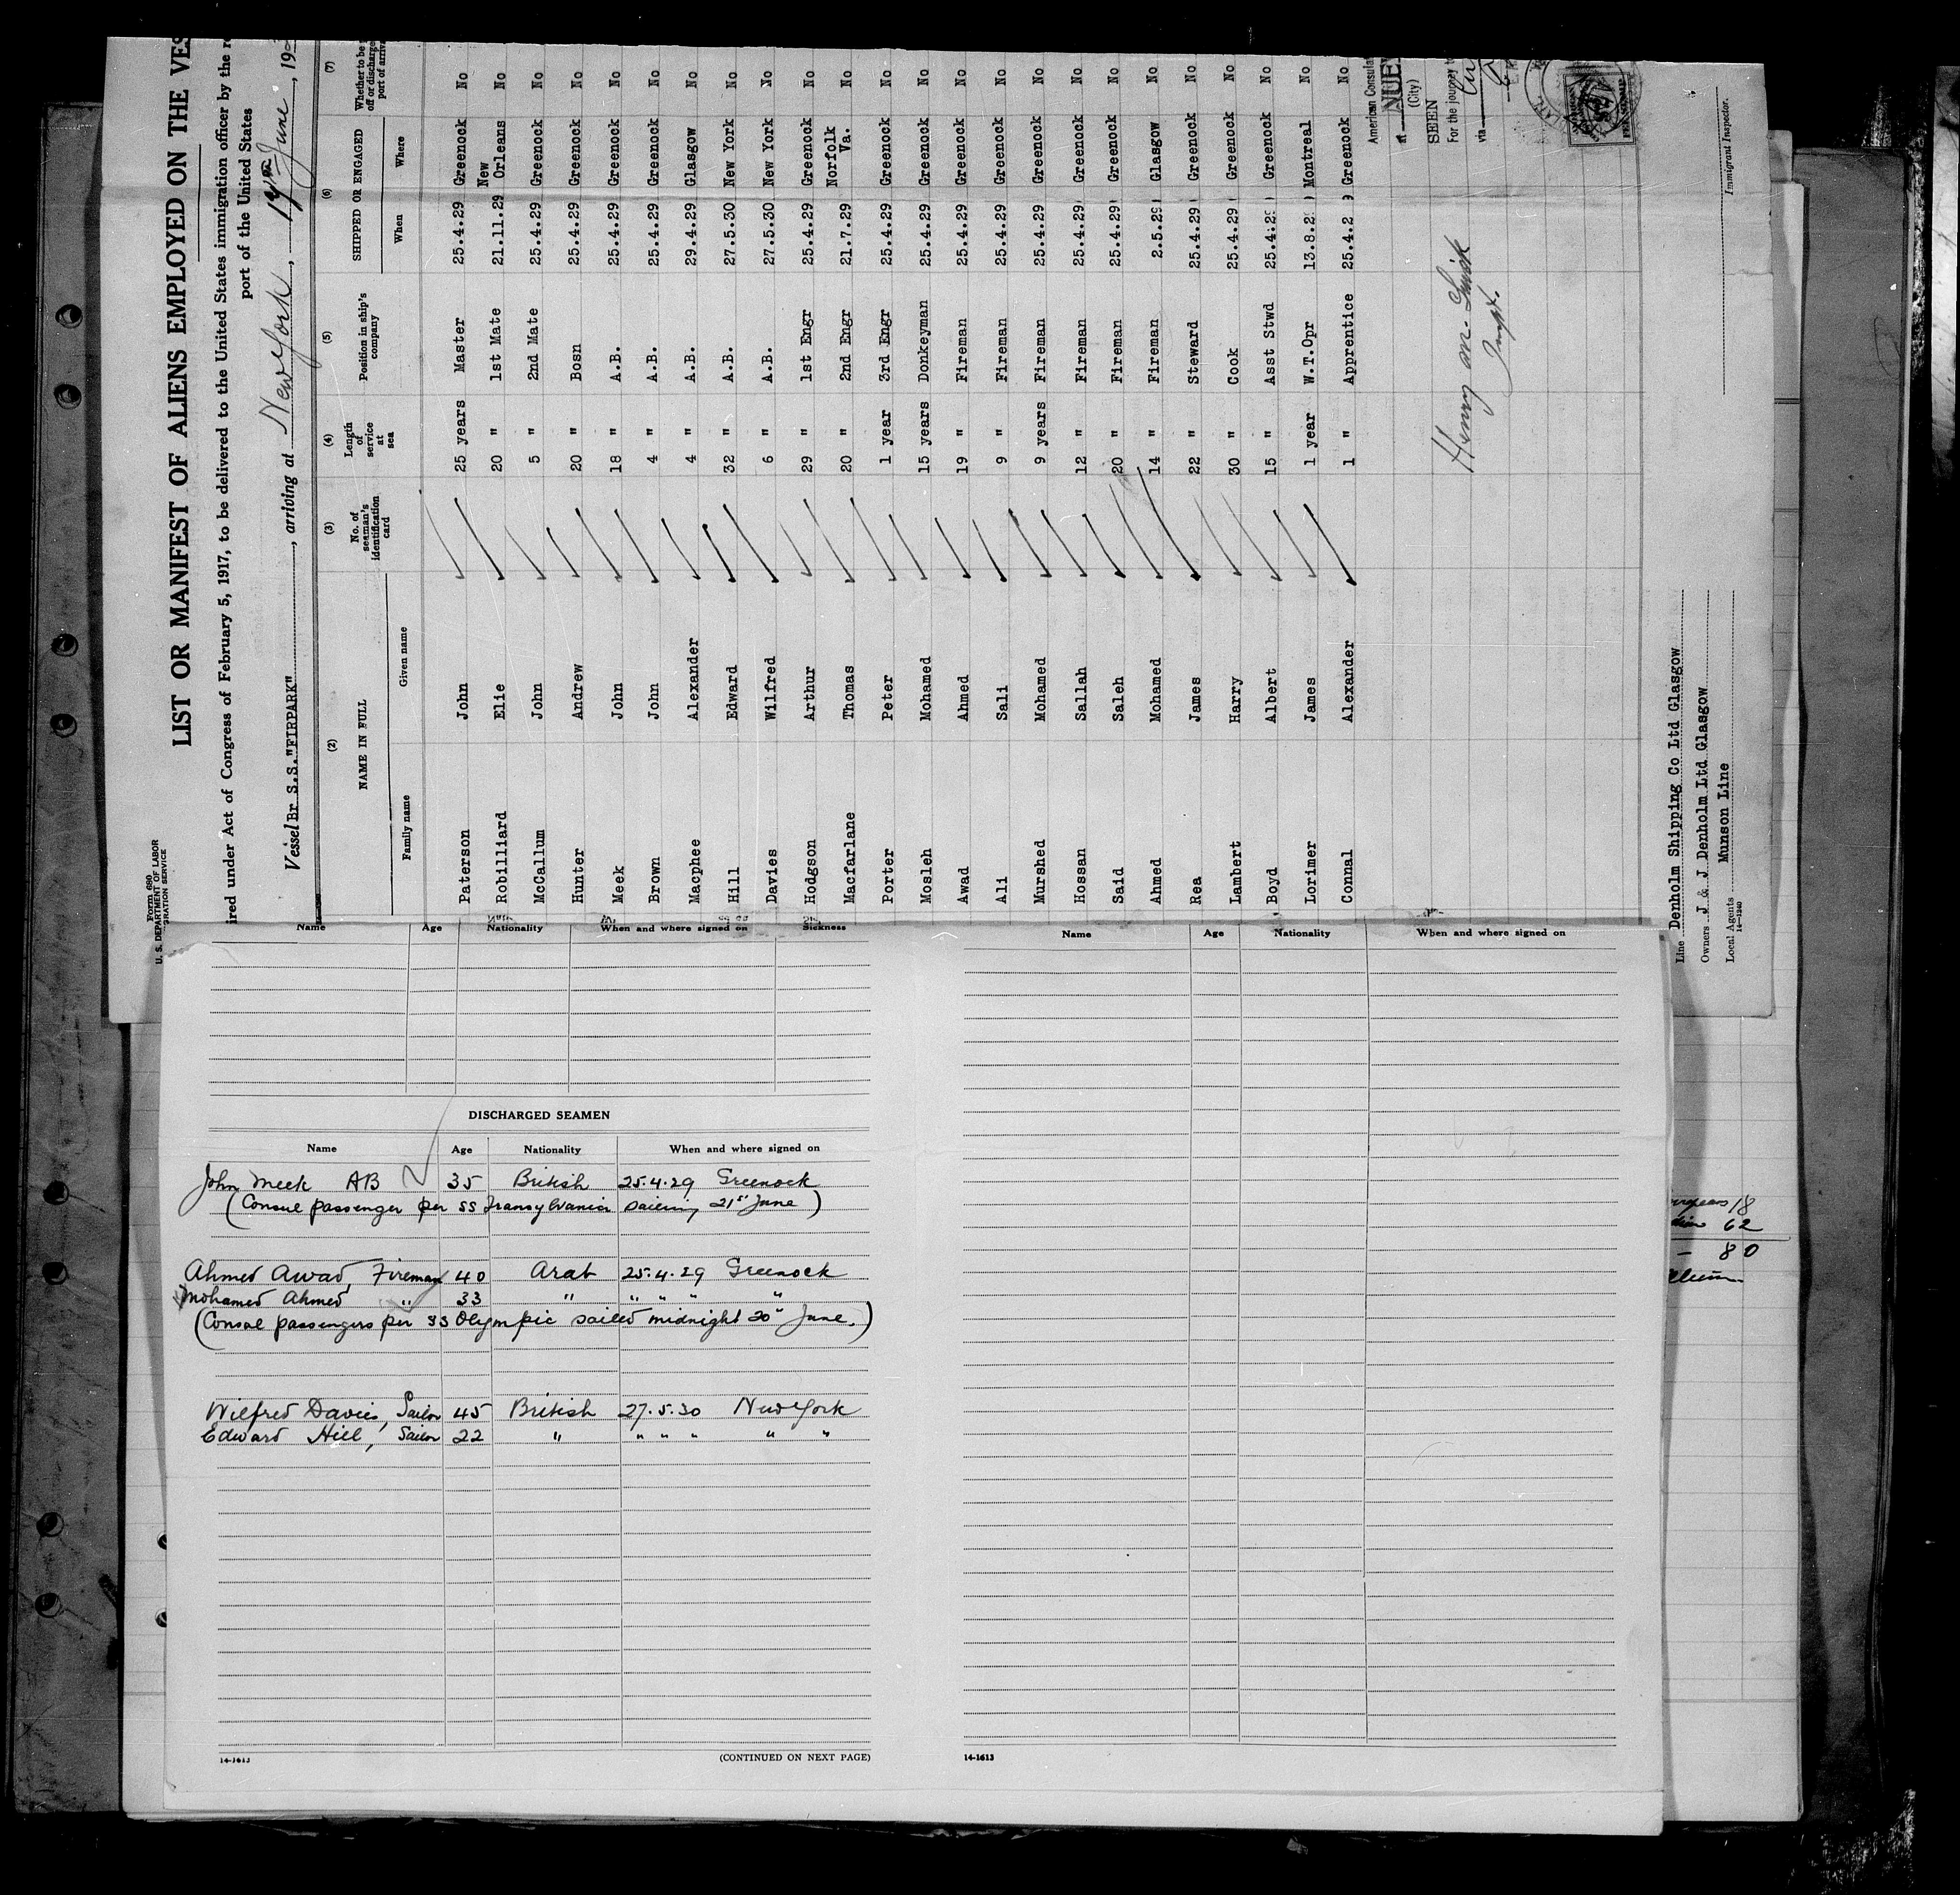 Form 680
U. S. DEPARTMENT OF LABOR
GRATION SERVICE
LIST OR MANIFEST OF ALIENS EMPLOYED ON THE VES
ired under Act of Congress of February 5, 1917, to be delivered to the United States immigration officer by the re
port of the United States
Vessel Br S.S."FIRPARK", arriving at New York, 17th June, 19
(2) (3) (4) (5) (6) (7)
NAME IN FULL No. of seaman's identification card Length of service at sea Position in ship's company SHIPPED OR ENGAGED Whether to be off or discharge port of arriva
Family name Given name When Where
Paterson John 25 years Master 25.4.29 Greenock No
Robilliard Elie 20 " 1st Mate 21.11.29 New Orleans No
McCallum John 5 " 2nd Mate 25.4.29 Greenock No
Hunter Andrew 20 " Bosn 25.4.29 Greenock No
Meek John 18 " A.B. 25.4.29 Greenock No
Brown John 4 " A.B. 25.4.29 Greenock No
Macphee Alexander 4 " A.B. 29.4.29 Glasgow No
Hill Edward 32 " A.B. 27.5.30 New York No
Davies Wilfred 6 " A.B. 27.5.30 New York No
Hodgson Arthur 29 " 1st Engr 25.4.29 Greenock No
Macfarlane Thomas 20 " 2nd Engr 21.7.29 Norfolk Va. No
Porter Peter 1 year 3rd Engr 25.4.29 Greenock No
Mosleh Mohamed 15 years Donkeyman 25.4.29 Greenock No
Awad Ahmed 19 " Fireman 25.4.29 Greenock No
Ali Sali 9 " Fireman 25.4.29 Greenock No
Murshed Mohamed 9 years Fireman 25.4.29 Greenock No
Hossan Sallah 12 " Fireman 25.4.29 Greenock No
Said Saleh 20 " Fireman 25.4.29 Greenock No
Ahmed Mohamed 14 " Fireman 2.5.29 Glasgow No
Rea James 22 " Steward 25.4.29 Greenock No
Lambert Harry 30 " Cook 25.4.29 Greenock No
Boyd Albert 15 " Asst Stwd 25.4.29 Greenock No
Lorimer James 1 year W.T.Opr 13.8.2 Montreal No
Connal Alexander 1 " Apprentice 25.4.2 9 Greenock No
American Consula
at NUE
(City)
SEEN
For the journey to
via
Henry M.
Immigrant Inspector.
Line Denholm Shipping Co Ltd Glasgow
Owners J & J Denholm Ltd Glasgow
Local Agents Munson Line
14—1240
Name Age Nationality When and where signed on Sickness
DISCHARGED SEAMEN
Name Age Nationality When and where signed on
John Meek AB 35 British 25.4.29 Greenock
(Consul passenger per SS Transylvania sailing 21st June)
Ahmed Awad, Fireman 40 Arab 25.4.29 Greenock
Mohamed Ahmed " 33 " " " " "
(Consul passengers per SS Olympic sailed midnight 20th June.)
Wilfred Davies, Sailor 45 British 27.5.30 New York
Edward Hill, Sailor 22 " " " " " "
14-1613
(CONTINUED ON NEXT PAGE)
Name Age Nationality When and where signed on
14-1613
18
62
— 80